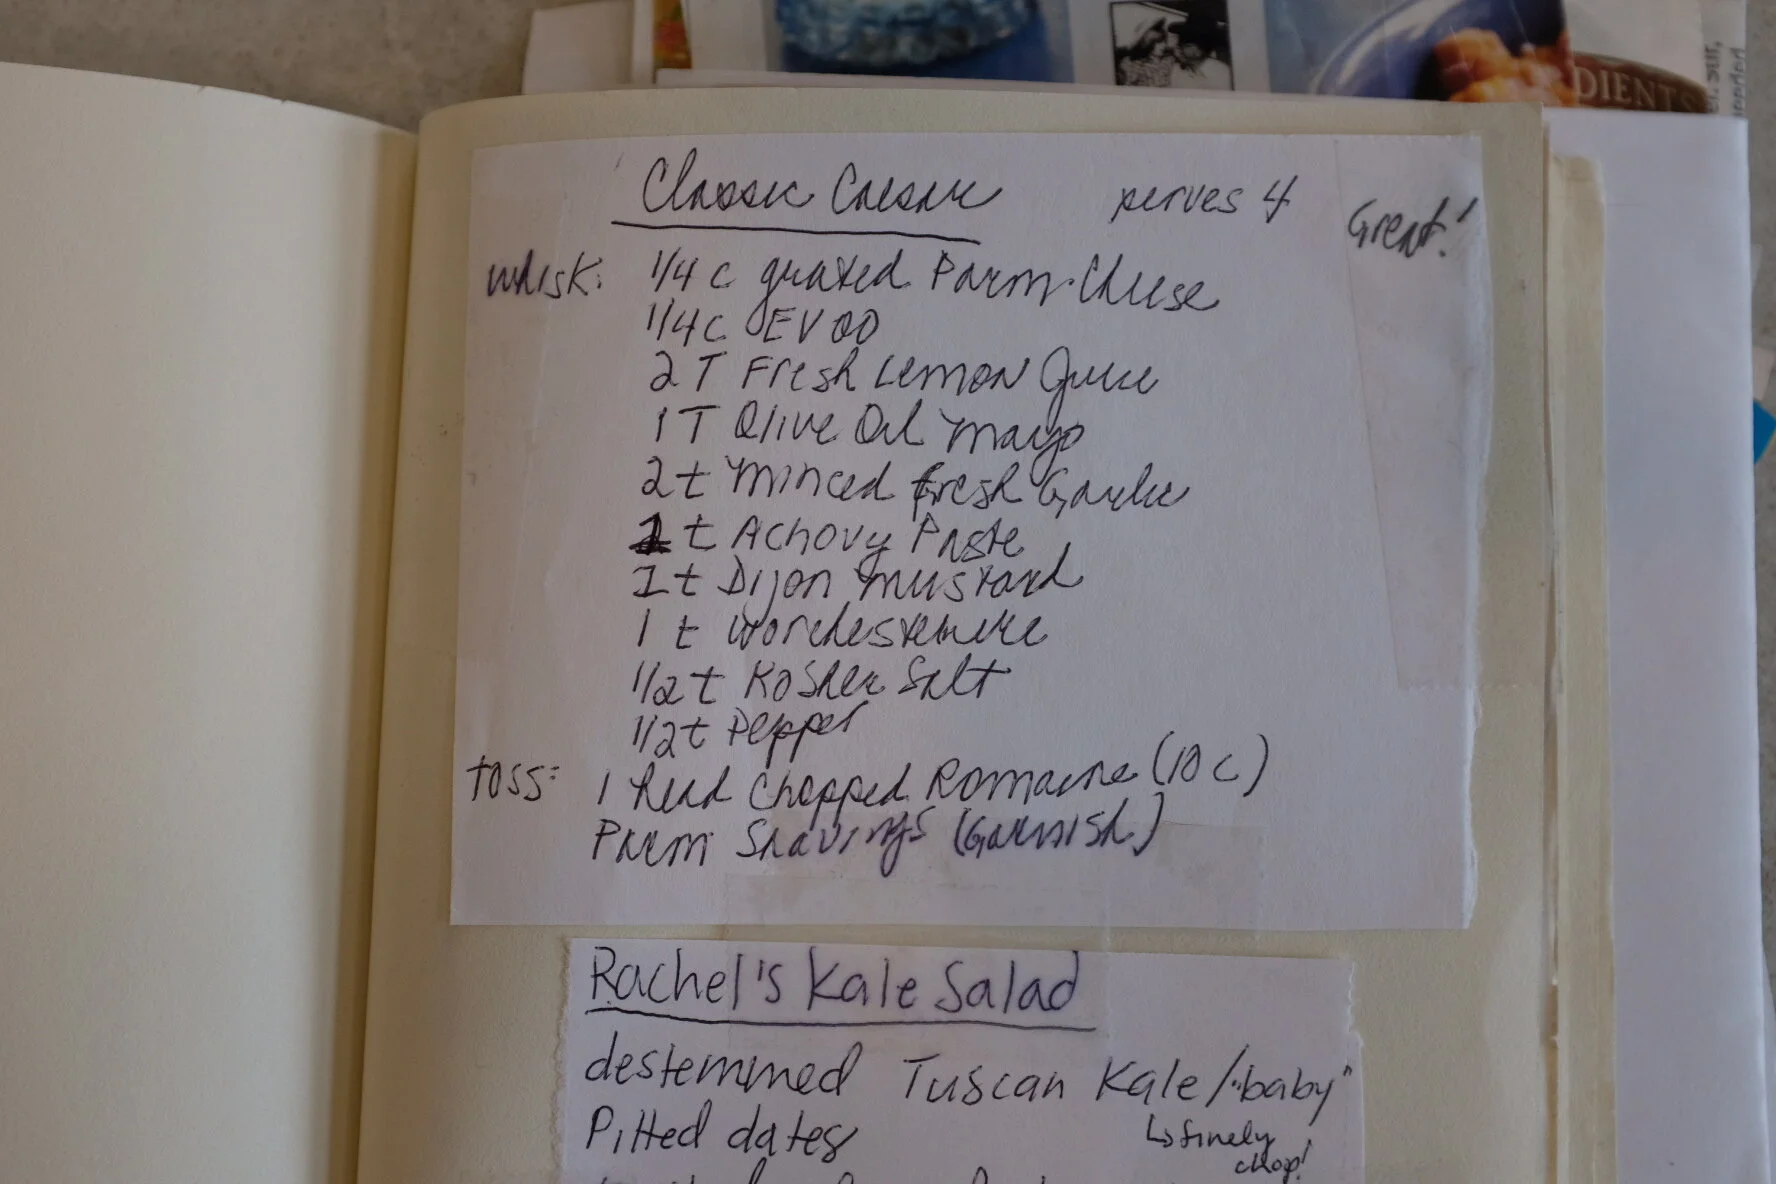 DIENTS
Classic Caesar serves 4 Great!
whisk: 1/4 c grated Parm. Cheese
1/4 c EVOO
2 T Fresh Lemon Juice
1 T Olive Oil Mayo
2 t Minced fresh Garlic
1 t Achovy Paste
1 t Dijon mustard
1 t Worchestershire
1/2 t Kosher Salt
1/2 t Pepper
toss: 1 head chopped Romaine (10 c)
Parm Shavings (Garnish)
Rachel's Kale Salad
destemmed Tuscan Kale/"baby"
Pitted dates ↳ finely
chop!